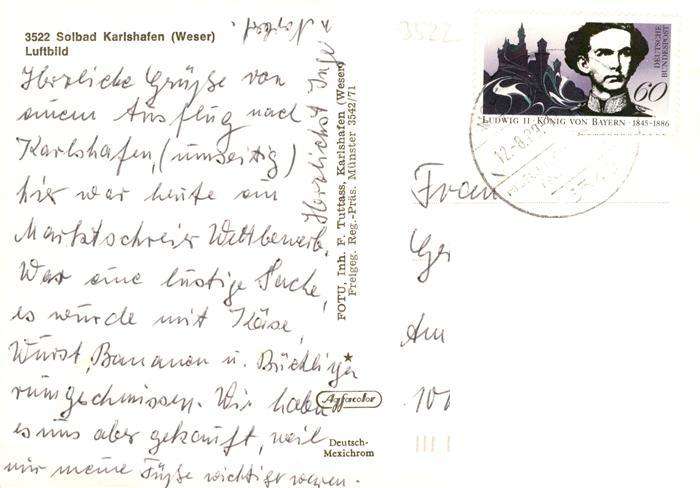 3522 Solbad Karlshafen (Weser)
Luftbild
Herzliche Grüße von
einem Ausflug nach
Karlshafen, (umseitig)
hier war heute ein
Marktschreier Wettbewerb.
War eine lustige Sache,
es wurde mit Käse,
Wurst, Bananen u. Bücklinge
rumgeschmissen. Wir haben
es uns aber gekauft, weil
mir meine Füße wichtiger waren.
Herzlichst Inge
u. Norbert
FOTU, Inh. F. Tuttass, Karlshafen (Weser)
Freigeg. Reg.-Präs. Münster 3542/71
Agfacolor
Deutsch-
Mexichrom
3522
DEUTSCHE
BUNDESPOST
60
LUDWIG II · KÖNIG VON BAYERN · 1845-1886
Frau
Ger
Am